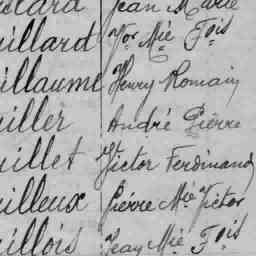 Jean Marie
uillard Vor Mie Fois
uillaume Henry Romain
uiller André Pierre
uillet Victor Ferdinand
uilleux Pierre Mie Victor
uillois Jean Mie Fois